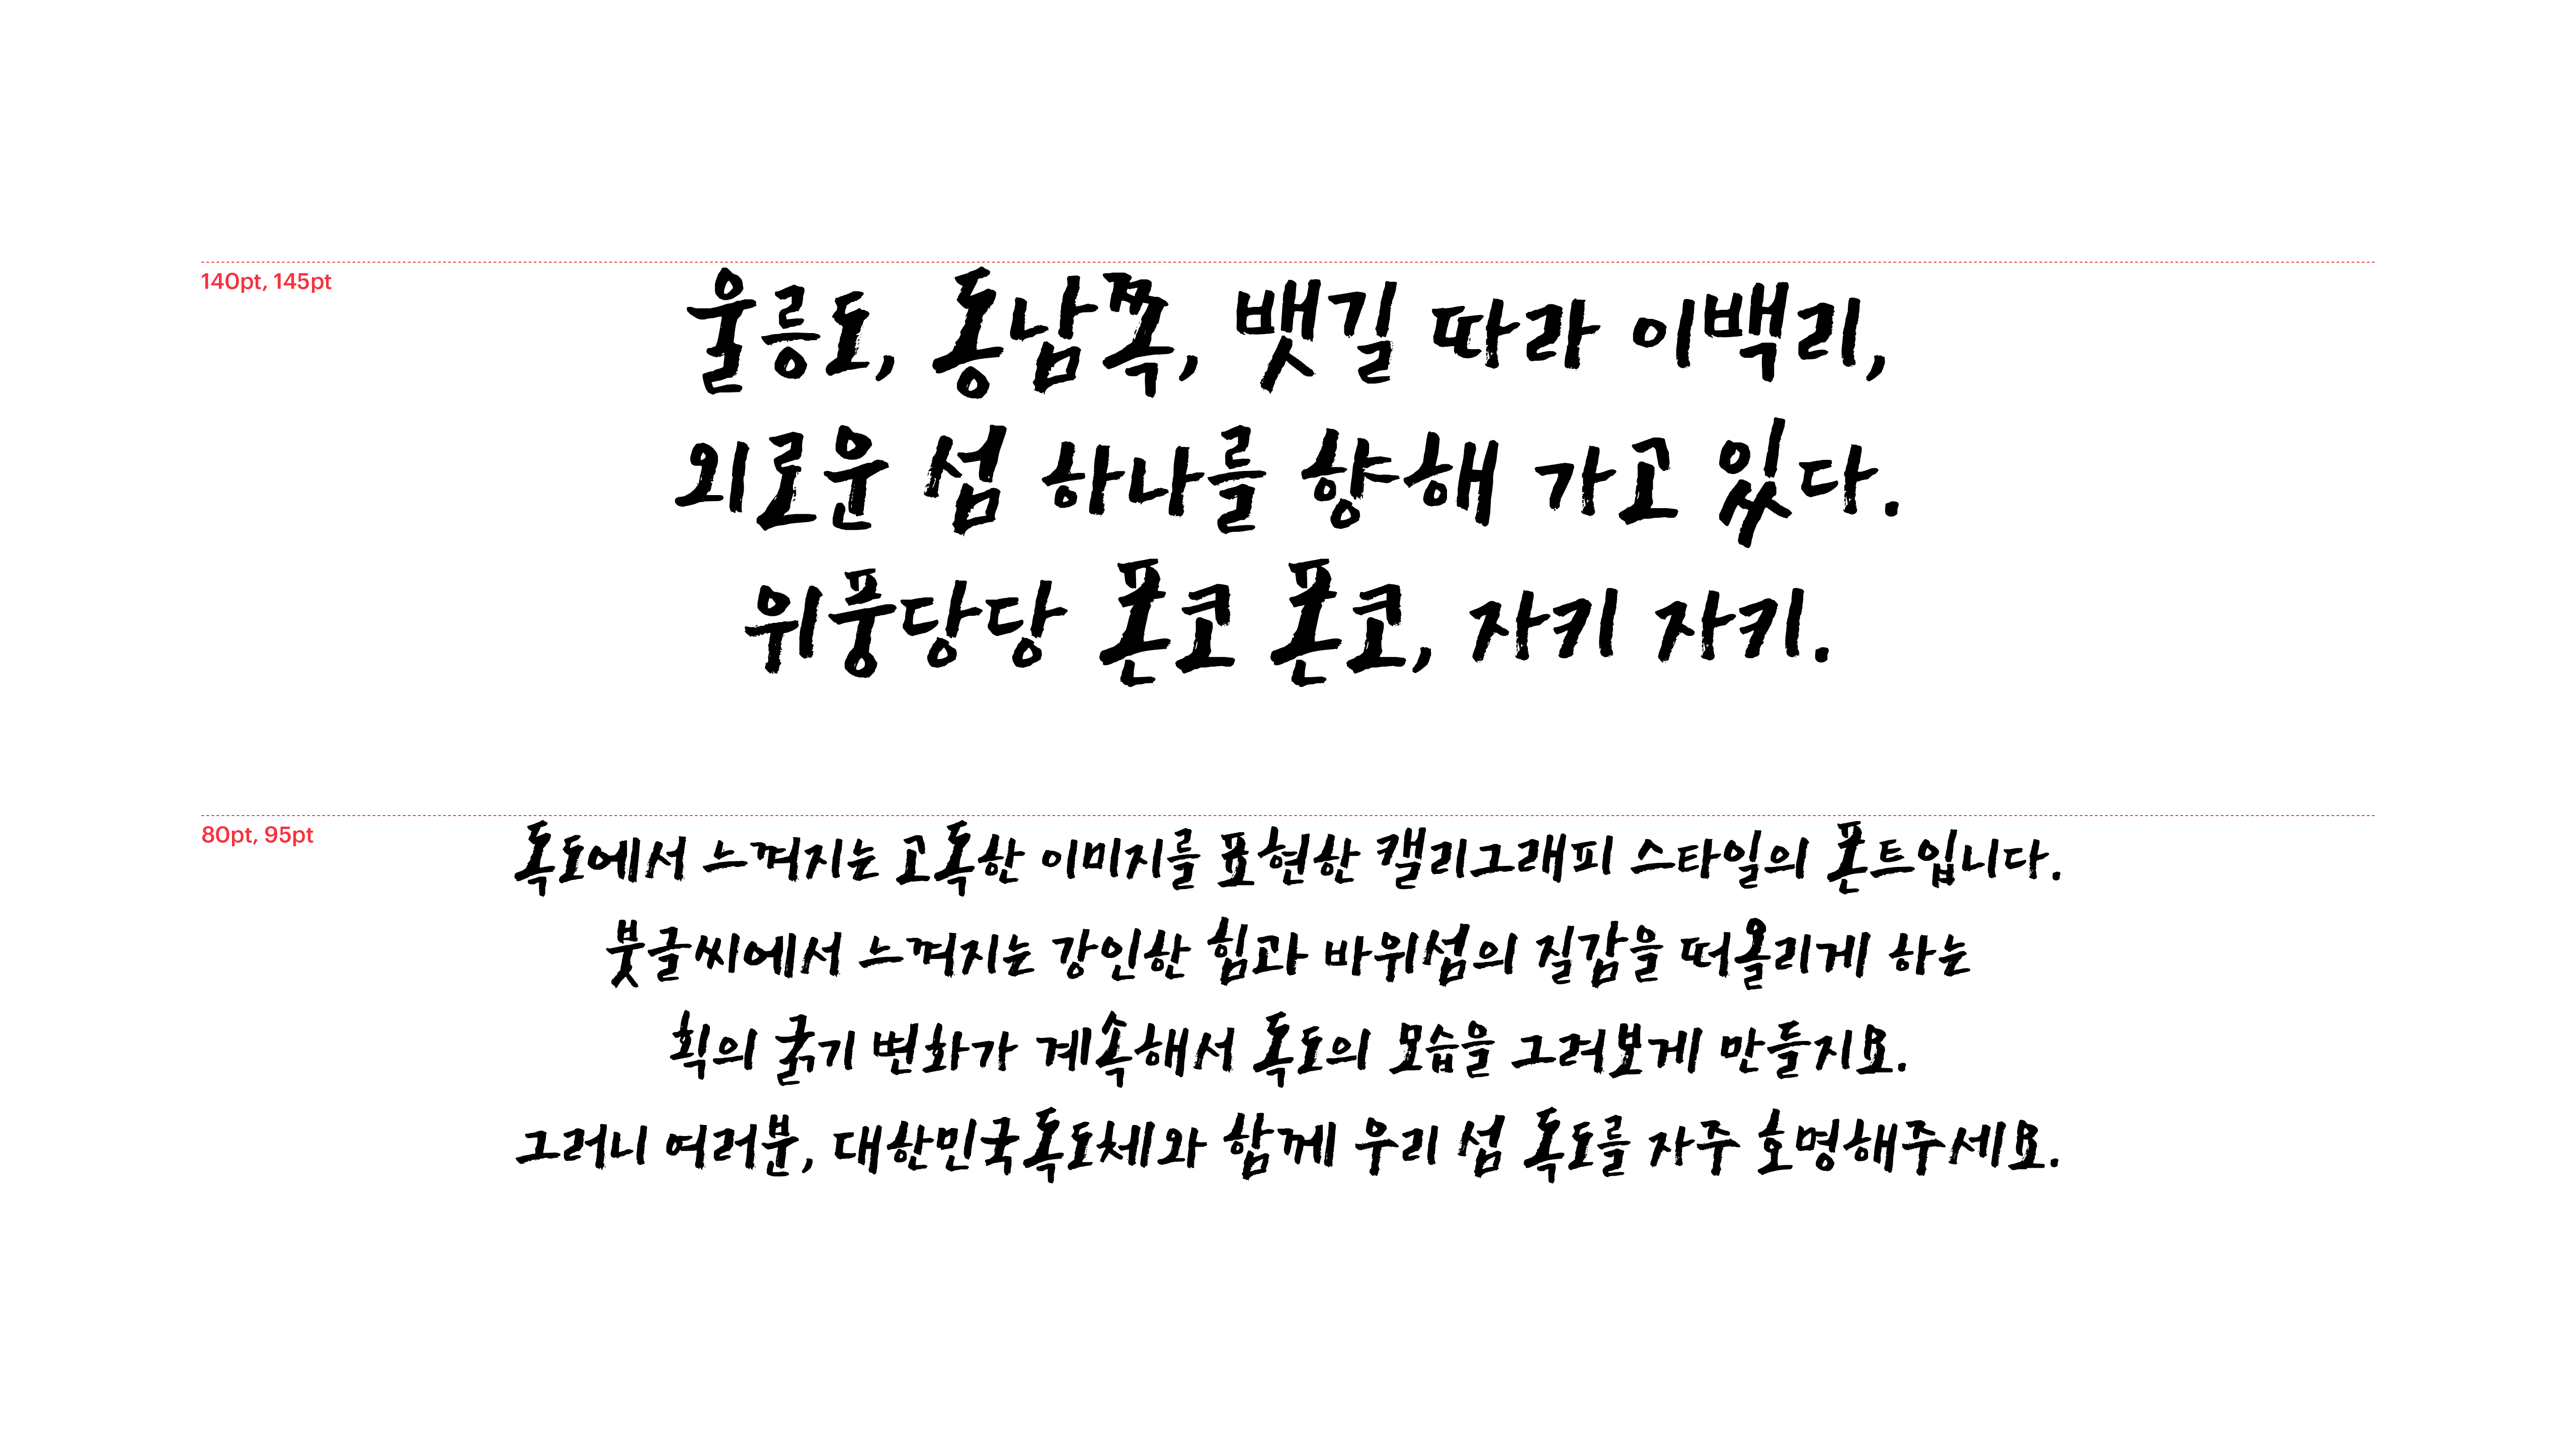 140pt, 145pt
울릉도, 동남쪽, 뱃길 따라 이백리,
외로운 섬 하나를 향해 가고 있다.
위풍당당 폰코 폰코, 자키 자키.
80pt, 95pt
독도에서 느껴지는 고독한 이미지를 표현한 캘리그래피 스타일의 폰트입니다.
붓글씨에서 느껴지는 강인한 힘과 바위섬의 질감을 떠올리게 하는
획의 굵기 변화가 계속해서 독도의 모습을 그려보게 만들지요.
그러니 여러분, 대한민국독도체와 함께 우리 섬 독도를 자주 호명해주세요.